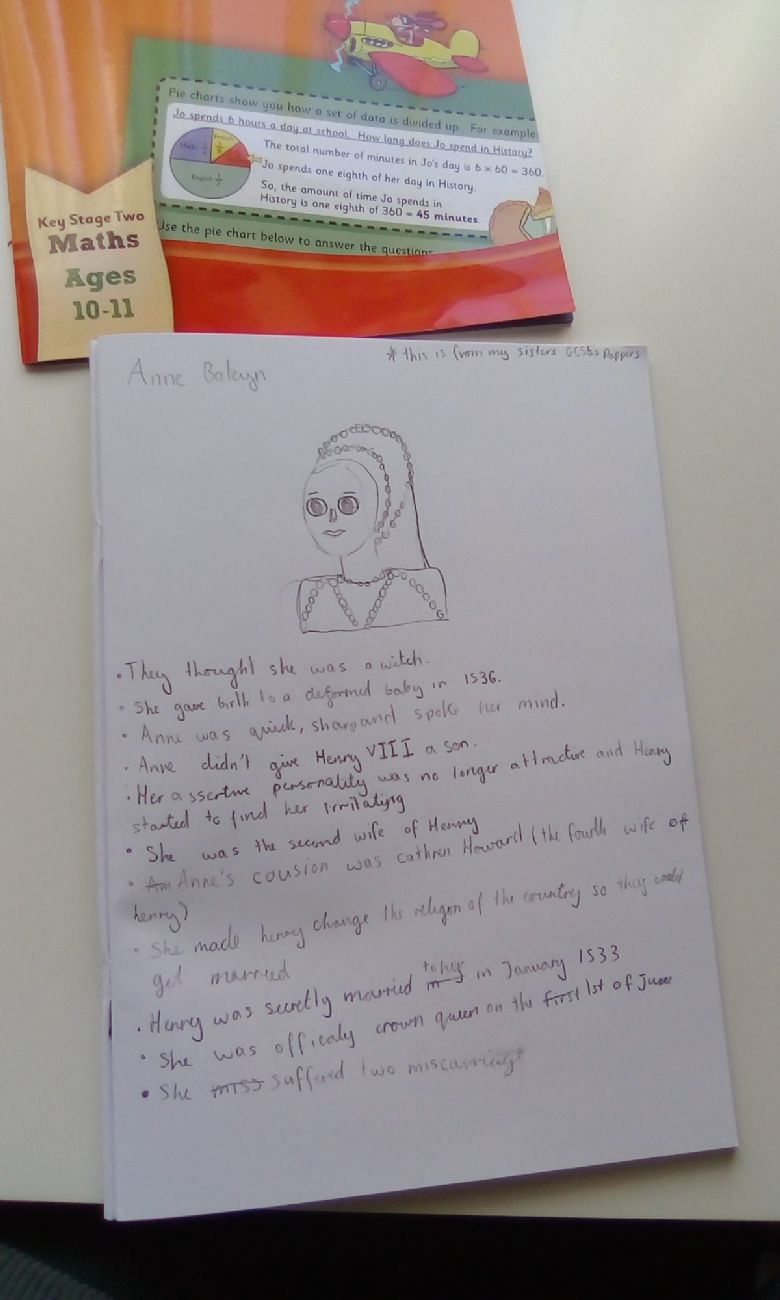 Pie charts show you how a set of data is divided up. For example
Jo spends 6 hours a day at school. How long does Jo spend in History?
The total number of minutes in Jo's day is 6 × 60 = 360.
Jo spends one eighth of her day in History.
So, the amount of time Jo spends in
History is one eighth of 360 = 45 minutes
English 1/2
Use the pie chart below to answer the questions
Key Stage Two
Maths
Ages
10-11
* this is from my sisters GCSEs Pappers
Anne Boleyn
• They thought she was a witch.
• She gave birth to a deformed baby in 1536.
• Anne was quick, sharp and spoke her mind.
• Anne didn't give Henry VIII a son.
• Her assertive personality was no longer attractive and Henry
started to find her irritating
• She was the second wife of Henry
• Am Anne's cousion was cathren Howard (the fourth wife of
henry)
• She made henry change the religon of the country so they could
get married
• Henry was secretly married to her in January 1533
• She was officaly crown queen on the first 1st of June
• She miss suffered two miscarriage